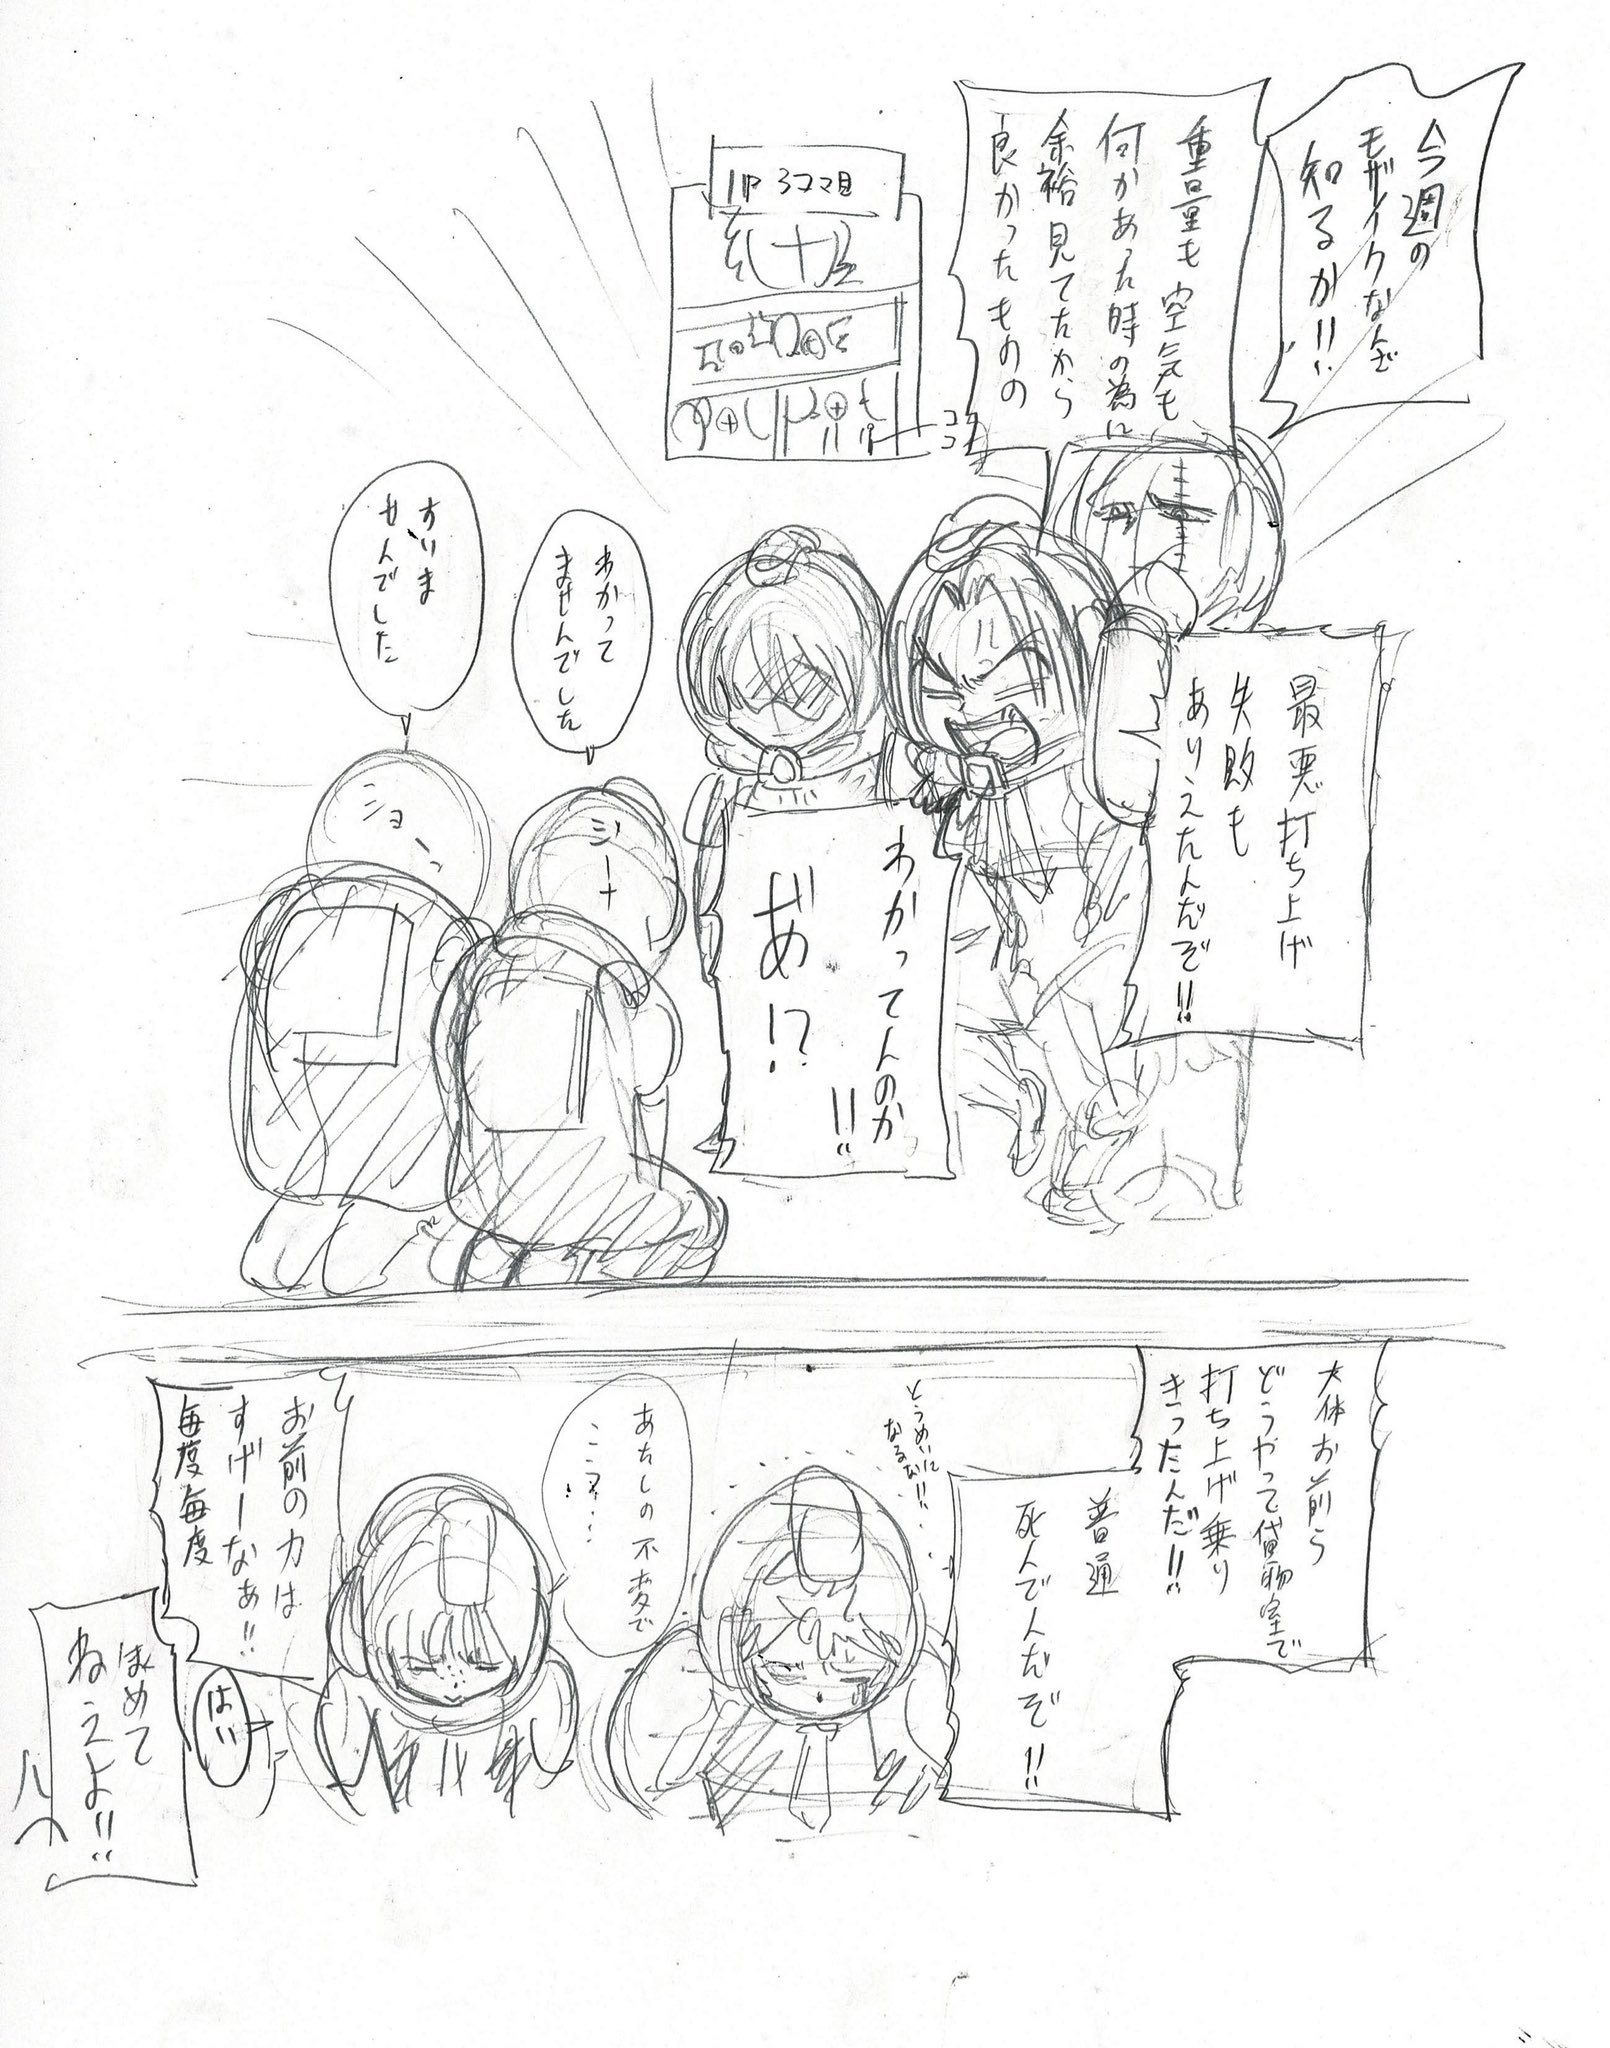 今週の
モザイクなんぞ
知るか!!
重量も空気も
何かあった時の為に
余裕見てたから
良かったものの
11P 3コマ目
ココ
最悪打ち上げ
失敗も
ありえたんだぞ!!
わかってんのか!!
あ゛!?
わかって
ませんでした
すいま
せんでした
ジーナ
ショーン
大体お前ら
どうやって貨物室で
打ち上げ乗り
きったんだ!!
普通
死んでんだぞ!!
とうめいに
なるな!!
あたしの不変で
こう…
お前の力は
すげーなぁ!!
毎度毎度
はい
ほめて
ねえよ!!